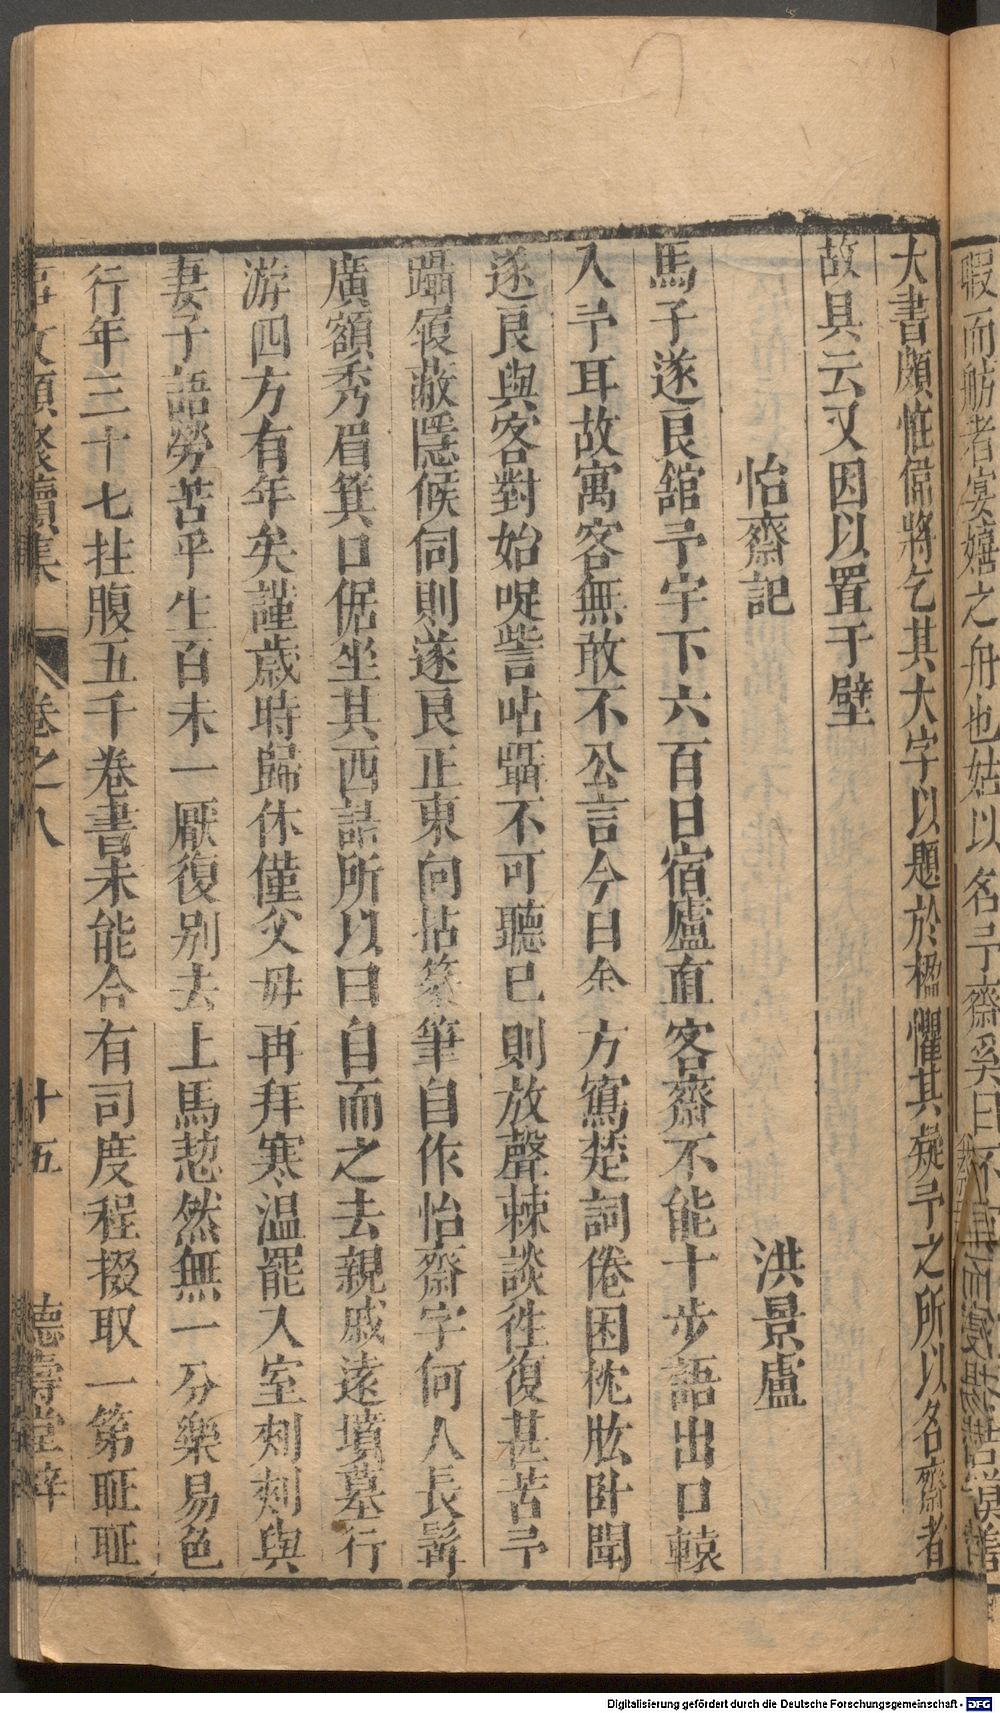 暇而舫者宴嬉之舟也姑以名予齋奚曰不宜而
大書頗怪偉將乞其大字以題於楹懼其疑予之所以名齋者
故具云又因以置于壁
怡齋記　洪景盧
馬子遂良舘予宇下六百日宿廬直客齋不能十步語出口轅
入予耳故寓客無敢不公言今日余方寫楚詞倦困枕肱卧聞
遂良與客對始哫訾呫聶不可聽已則放聲棘談徃復甚苦予
躡履蔽隱候伺則遂良正東向拈篆筆自作怡齋字何人長髯
廣額秀眉箕口倨坐其西詰所以曰自而之去親戚遠墳墓行
游四方有年矣謹歲時歸休僅父母再拜寒溫罷入室刺刺與
妻子語勞苦平生百未一厭復别去上馬愸然無一分樂易色
行年三十七拄腹五千卷書未能合有司度程掇取一第耻耻
事文類聚續集　卷之八　十五　德壽堂梓
Digitalisierung gefördert durch die Deutsche Forschungsgemeinschaft - DFG